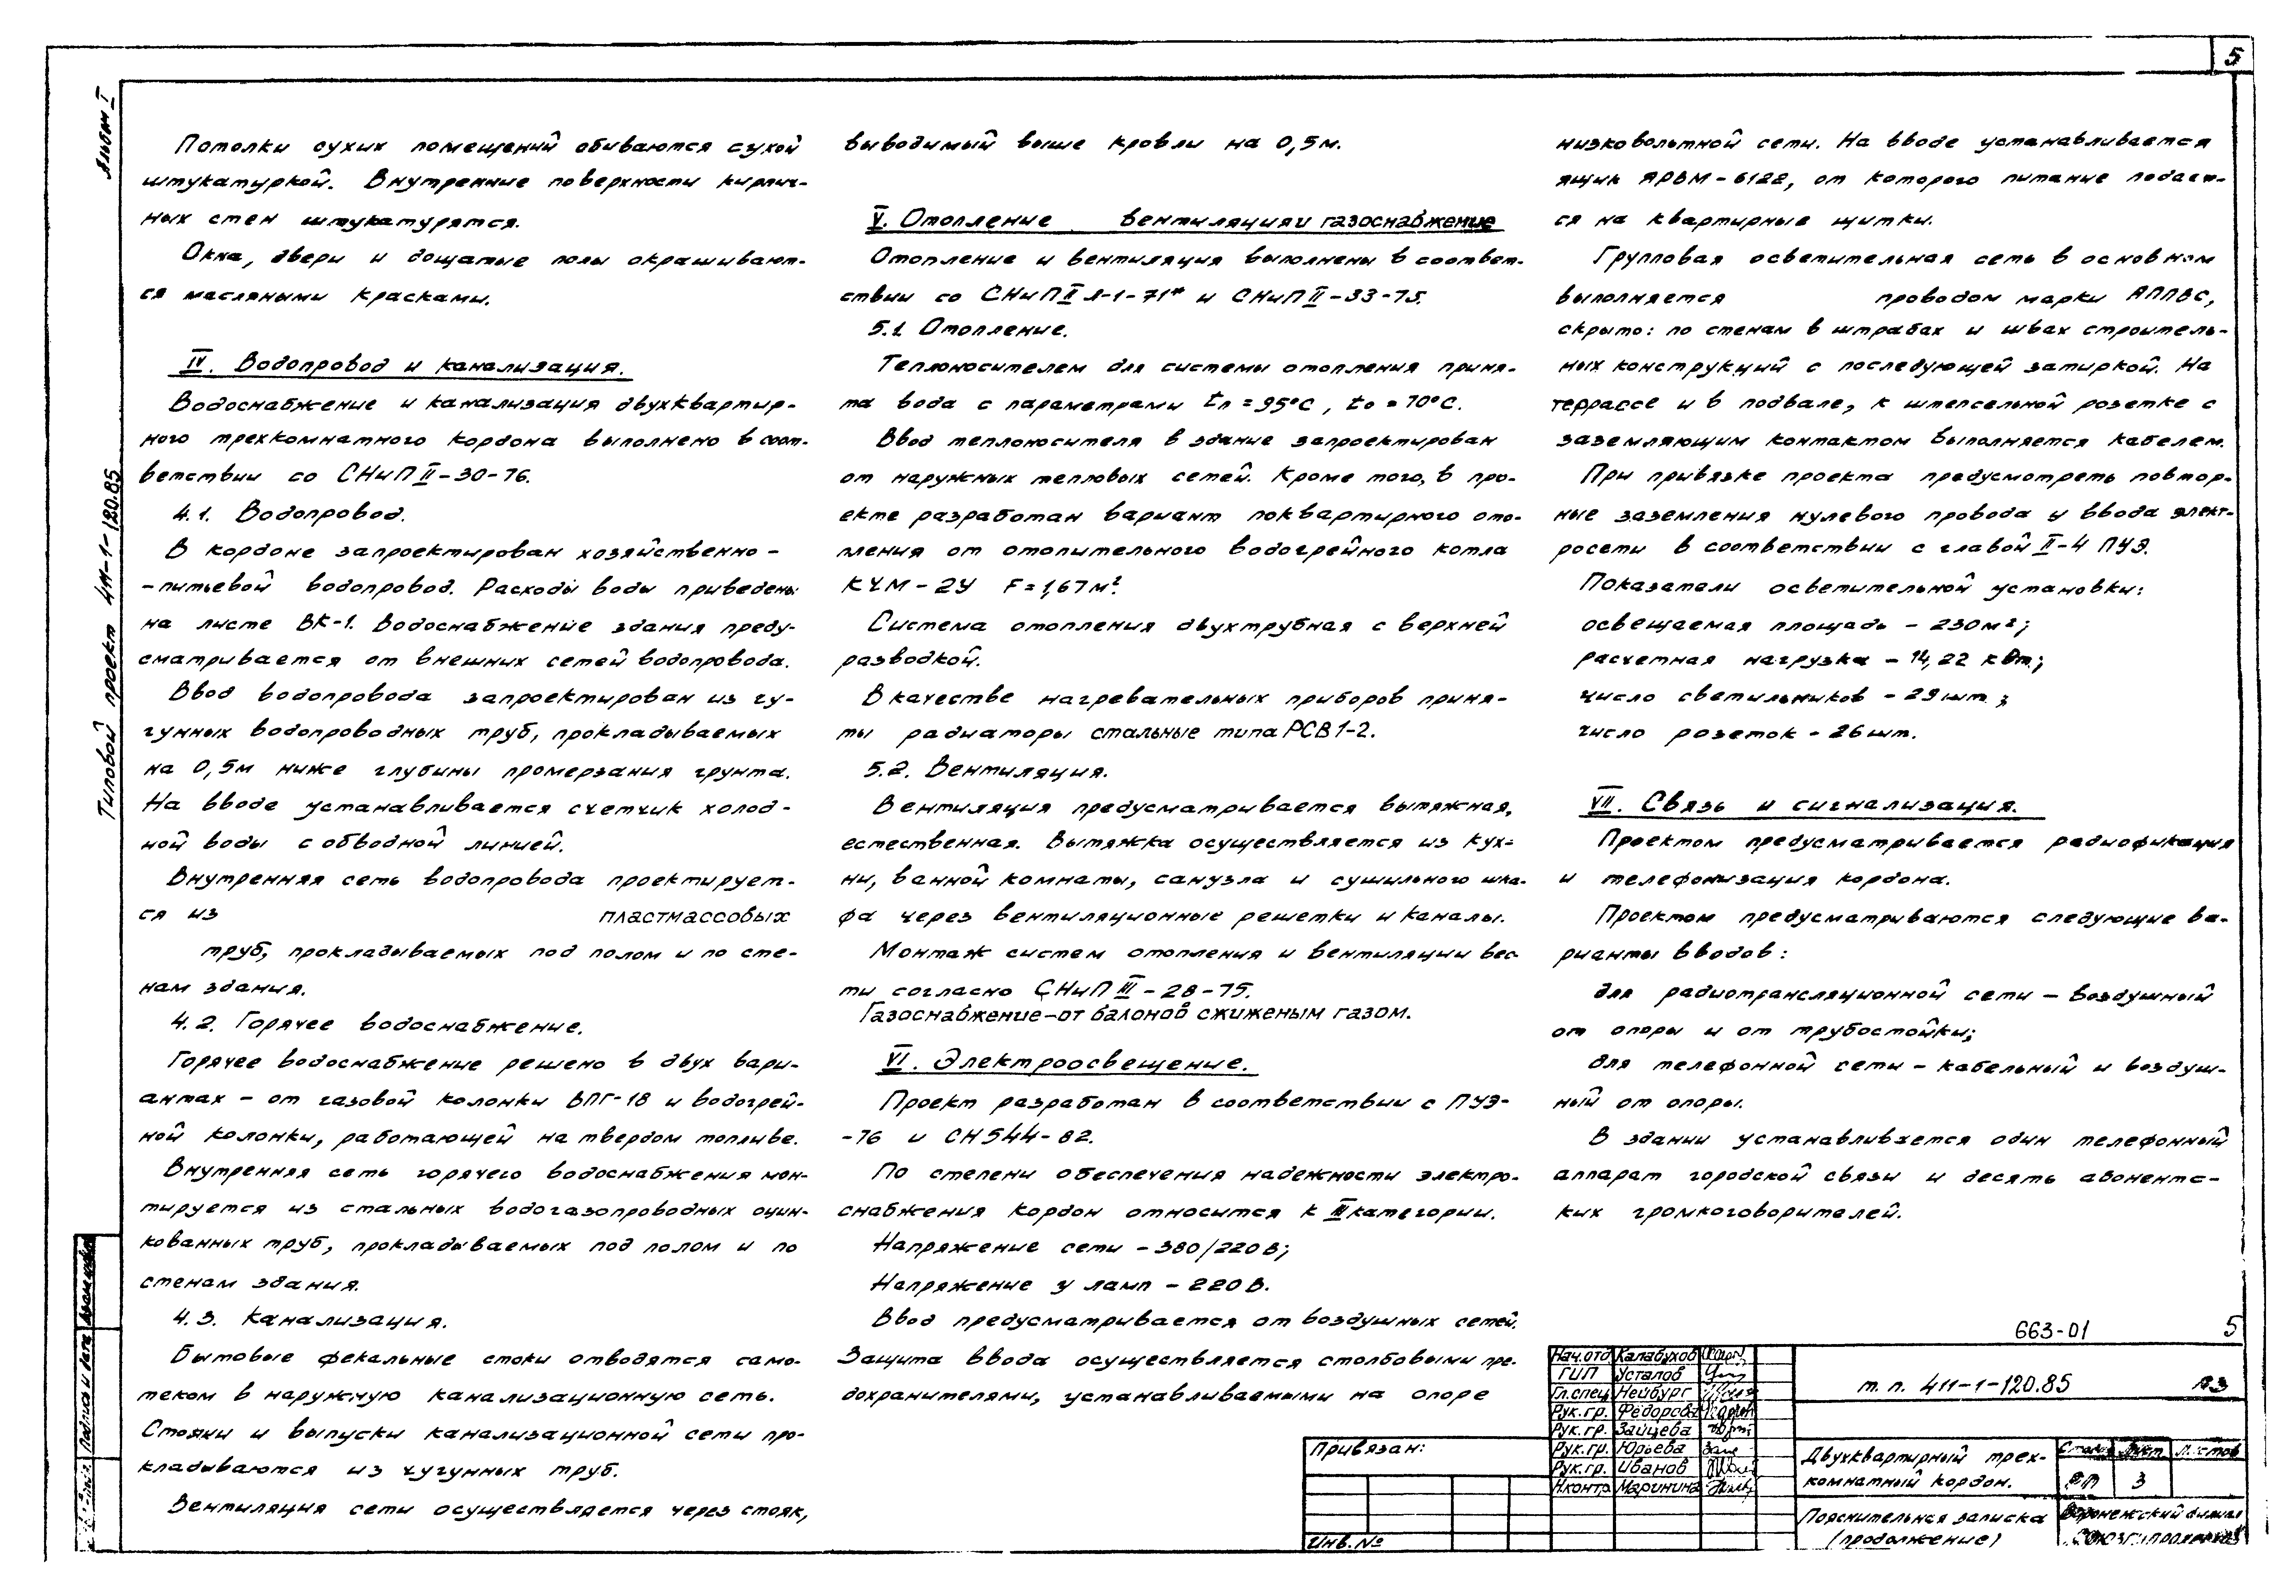 5
Альбом I
Типовой проект 411-1-120.85
Потолки сухих помещений обиваются сухой
штукатуркой. Внутренние поверхности кирпич-
ных стен штукатурятся.
Окна, двери и дощатые полы окрашивают-
ся масляными красками.
IV. Водопровод и канализация.
Водоснабжение и канализация двухквартир-
ного трехкомнатного кордона выполнено в соот-
ветствии со СНиП II-30-76.
4.1. Водопровод.
В кордоне запроектирован хозяйственно -
-питьевой водопровод. Расходы воды приведены
на листе ВК-1. Водоснабжение здания преду-
сматривается от внешних сетей водопровода.
Ввод водопровода запроектирован из чу-
гунных водопроводных труб, прокладываемых
на 0,5м ниже глубины промерзания грунта.
На вводе устанавливается счетчик холод-
ной воды с обводной линией.
Внутренняя сеть водопровода проектирует-
ся из пластмассовых
труб, прокладываемых под полом и по сте-
нам здания.
4.2. Горячее водоснабжение.
Горячее водоснабжение решено в двух вари-
антах - от газовой колонки ВПГ-18 и водогрей-
ной колонки, работающей на твердом топливе.
Внутренняя сеть горячего водоснабжения мон-
тируется из стальных водогазопроводных оцин-
кованных труб, прокладываемых под полом и по
стенам здания.
4.3. Канализация.
Бытовые фекальные стоки отводятся само-
теком в наружную канализационную сеть.
Стояки и выпуски канализационной сети про-
кладываются из чугунных труб.
Вентиляция сети осуществляется через стояк,
выводимый выше кровли на 0,5м.
V. Отопление вентиляция и газоснабжение
Отопление и вентиляция выполнены в соответ-
ствии со СНиП II Л-1-71* и СНиП II-33-75.
5.1. Отопление.
Теплоносителем для системы отопления приня-
та вода с параметрами tп = 95°C, to = 70°C.
Ввод теплоносителя в здание запроектирован
от наружных тепловых сетей. Кроме того, в про-
екте разработан вариант поквартирного ото-
пления от отопительного водогрейного котла
КЧМ - 2У F = 1,67 м².
Система отопления двухтрубная с верхней
разводкой.
В качестве нагревательных приборов приня-
ты радиаторы стальные типа РСВ1-2.
5.2. Вентиляция.
Вентиляция предусматривается вытяжная,
естественная. Вытяжка осуществляется из кух-
ни, ванной комнаты, санузла и сушильного шка-
фа через вентиляционные решетки и каналы.
Монтаж систем отопления и вентиляции вес-
ти согласно СНиП III - 28-75.
Газоснабжение-от балонов сжиженым газом.
VI. Электроосвещение.
Проект разработан в соответствии с ПУЭ-
-76 и СН 544-82.
По степени обеспечения надежности электро-
снабжения кордон относится к III категории.
Напряжение сети - 380/220 в;
Напряжение у ламп - 220 в.
Ввод предусматривается от воздушных сетей.
Защита ввода осуществляется столбовыми пре-
дохранителями, устанавливаемыми на опоре
низковольтной сети. На вводе устанавливается
ящик ЯРВМ-6122, от которого питание подает-
ся на квартирные щитки.
Групповая осветительная сеть в основном
выполняется проводом марки АППВС,
скрыто: по стенам в штрабах и швах строитель-
ных конструкций с последующей затиркой. На
террассе и в подвале, к штепсельной розетке с
заземляющим контактом выполняется кабелем.
При привязке проекта предусмотреть повтор-
ные заземления нулевого провода у ввода элект-
росети в соответствии с главой II-4 ПУЭ.
Показатели осветительной установки:
освещаемая площадь - 230м²;
расчетная нагрузка - 14,22 кВт;
число светильников - 29шт.;
число розеток - 26шт.
VII. Связь и сигнализация.
Проектом предусматривается радиофикация
и телефонизация кордона.
Проектом предусматриваются следующие ва-
рианты вводов:
для радиотрансляционной сети - воздушный
от опоры и от трубостойки;
для телефонной сети - кабельный и воздуш-
ный от опоры.
В здании устанавливается один телефонный
аппарат городской связи и десять абонентс-
ких громкоговорителей.
663-01 5
Нач.отд Калабухов
ГИП Усталов
Гл.спец Нейбург
Рук.гр. Фёдорова
Рук.гр. Зайцева
Рук.гр. Юрьева
Рук.гр. Иванов
Н.контр Маринина
т. п. 411-1-120.85 ПЗ
Привязан:
Инв. №
Двухквартирный трех-
комнатный кордон.
Стадия Лист Листов
РП 3
Пояснительная записка
(продолжение)
Воронежский филиал
Подпись и дата
Взам инв.№